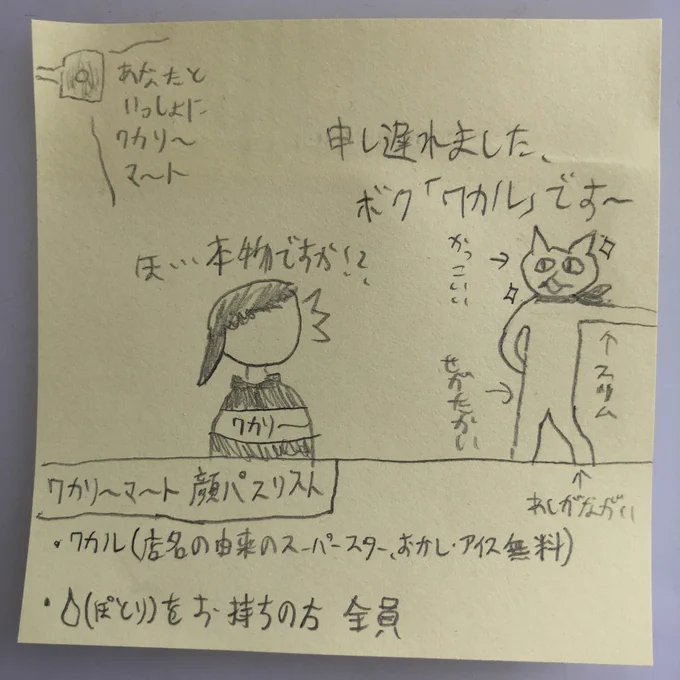 あなたと
いっしょに
ワカリ〜
マ〜ト
申し遅れました、
ボク「ワカル」です〜
ほ、、本物ですか!?
かっこいい
せがたかい
スリム
あしがながい
ワカリ〜
ワカリ〜マ〜ト 顔パスリスト
・ワカル(店名の由来のスーパースター、おかし・アイス無料)
・💧(ぽとり)をお持ちの方 全員